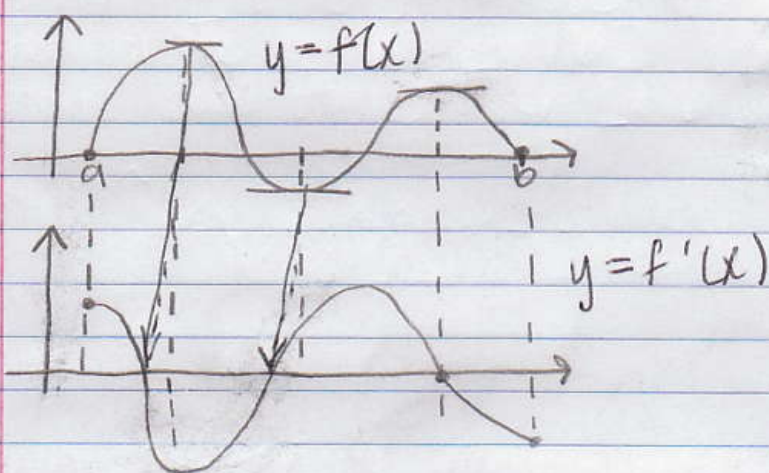 y = f(x)
a
b
y = f'(x)